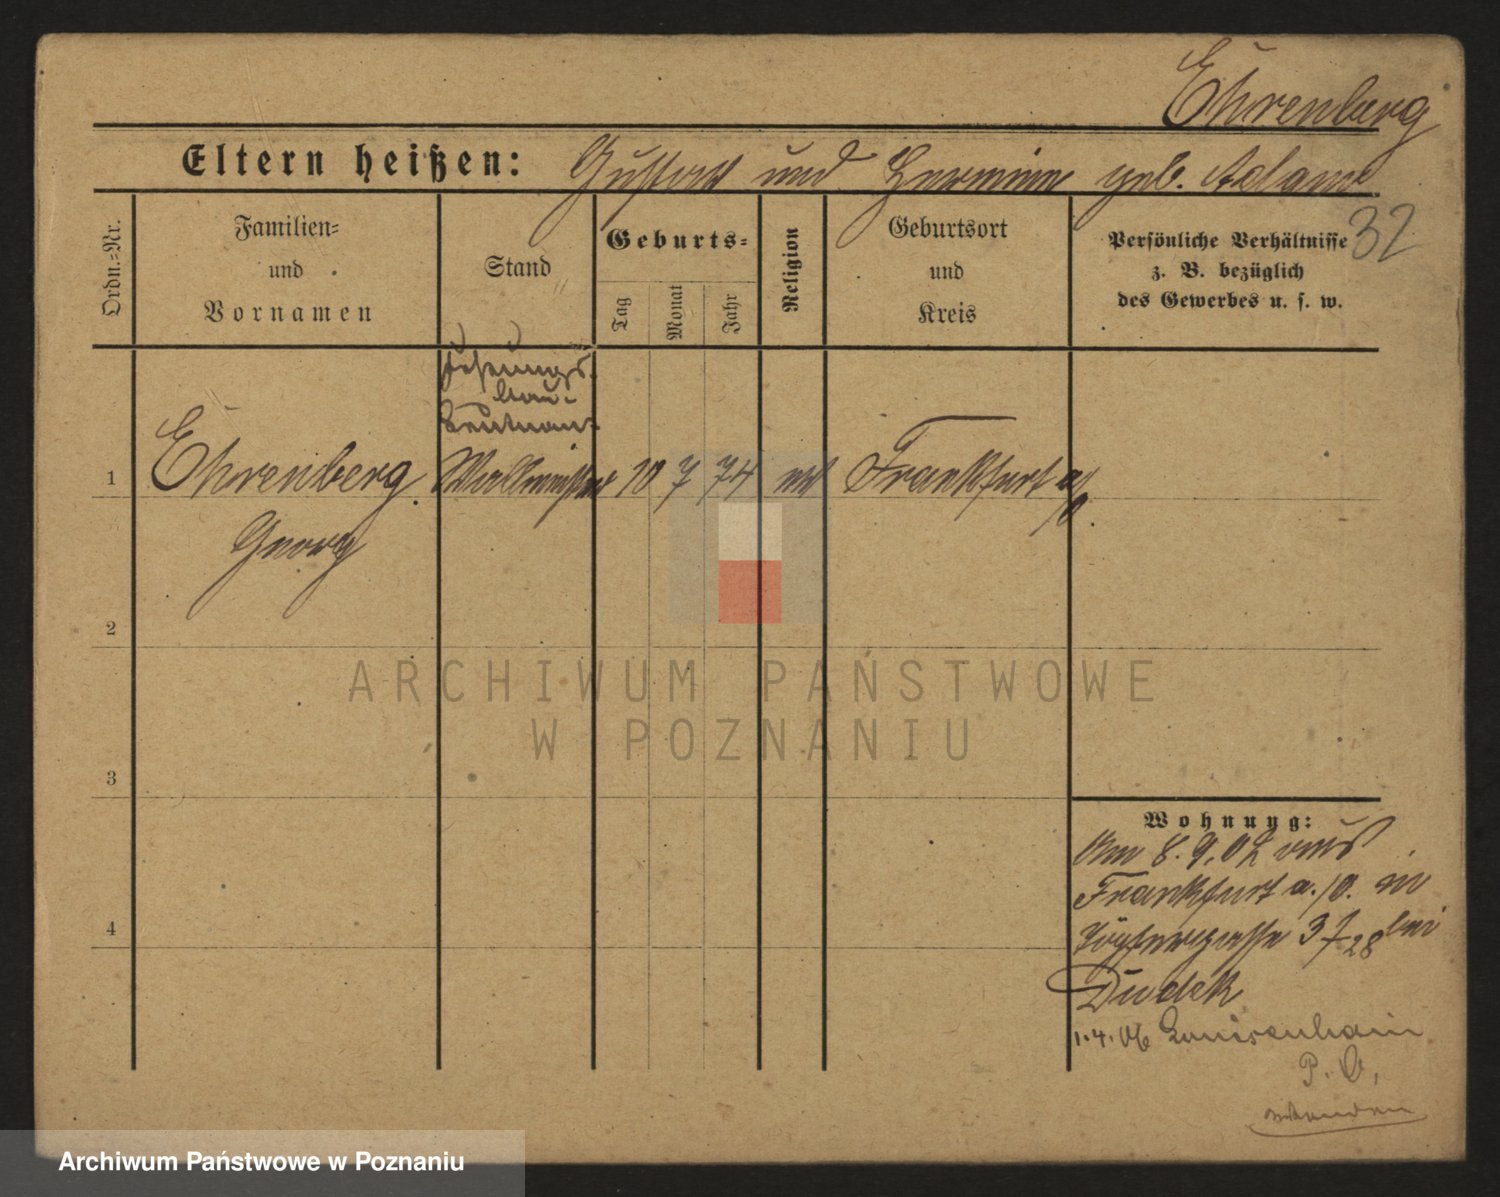 Ehrenberg
Eltern heißen: Gustav und Hermine geb. Adam
32
Ordn.-Nr.
Familien-
und
Vornamen
Stand
Geburts-
Tag
Monat
Jahr
Religion
Geburtsort
und
Kreis
Persönliche Verhältnisse
z. B. bezüglich
des Gewerbes u. s. w.
Festungs-
bau-
Leutnant
1 Ehrenberg Wallmeister 10 7 74 ev Frankfurt a/O.
Georg
2
3
4
Wohnung:
Am 8.9.02 aus
Frankfurt a./O. in
Töpfergasse 3 I 28 bei
Dudek
1.4.06 Louisenhain
P. O.
ARCHIWUM PAŃSTWOWE
W POZNANIU
Archiwum Państwowe w Poznaniu